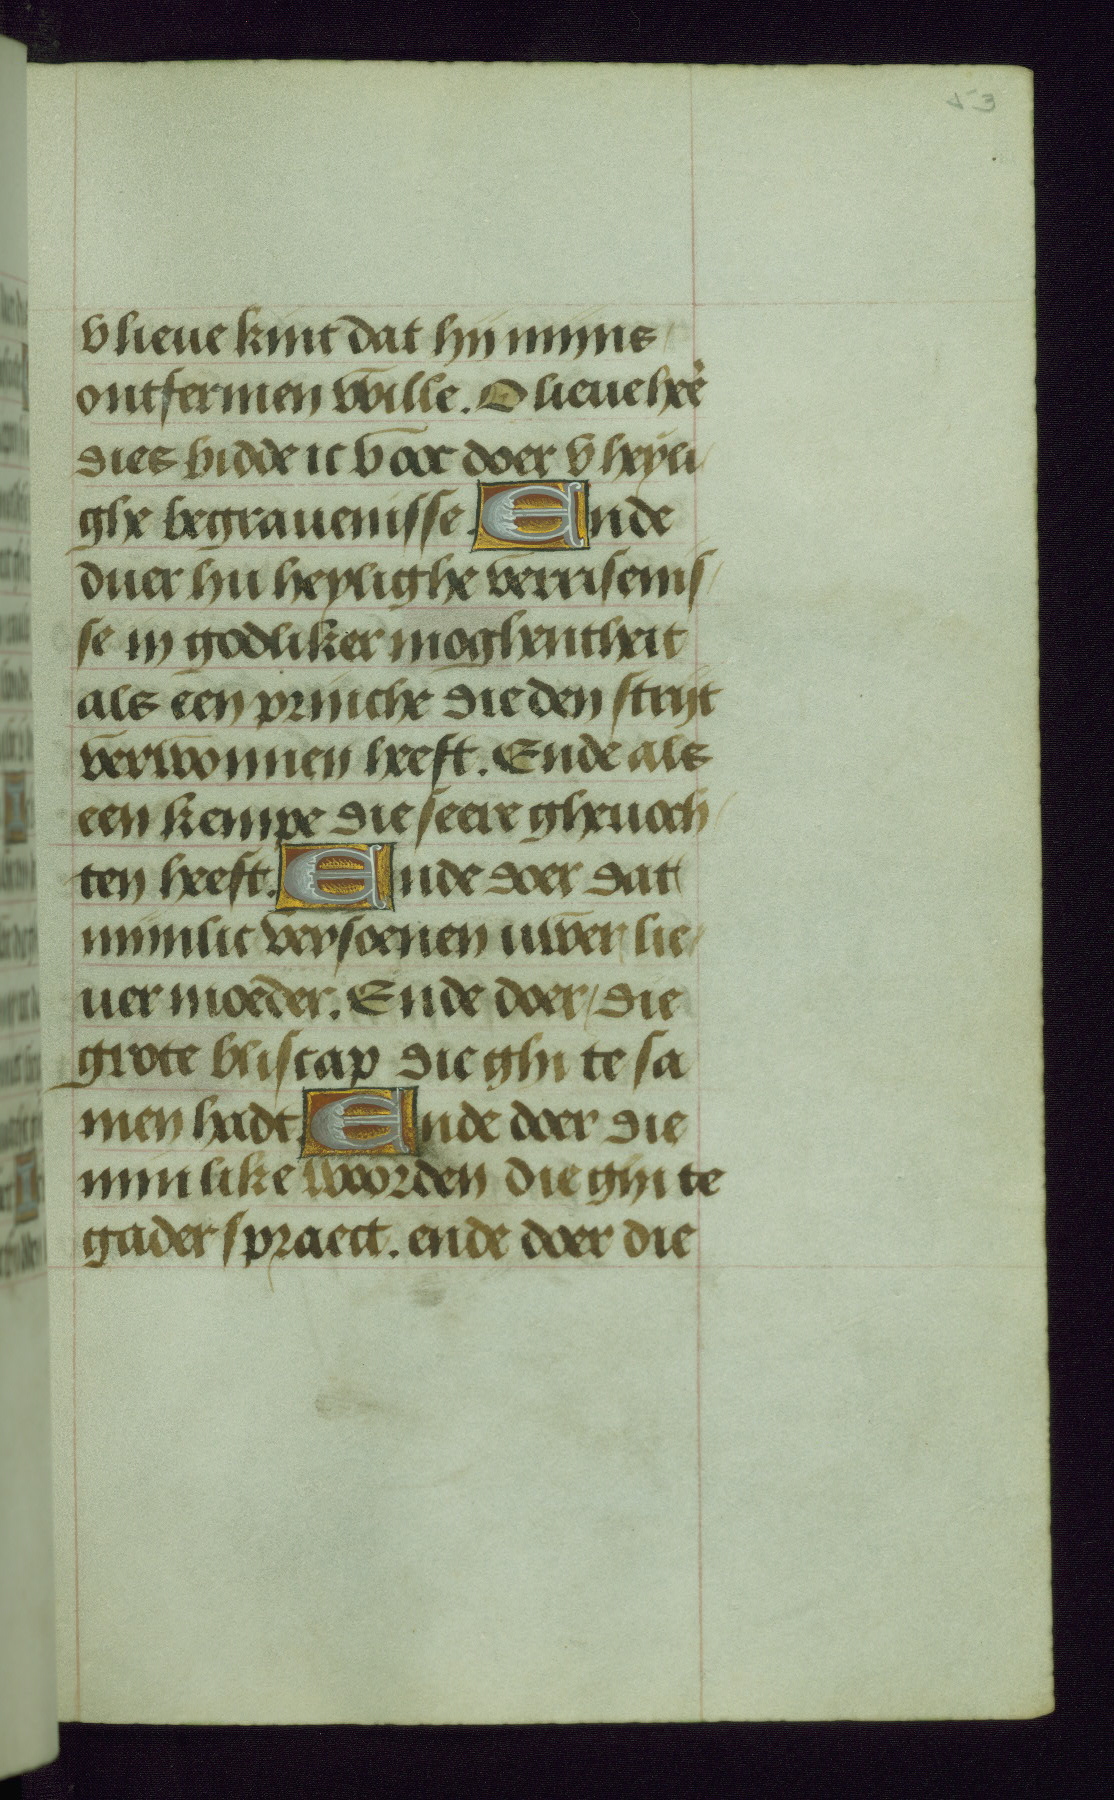 53
v lieue kint dat hij mijns
ontfermen wille. O lieue heer̄
dies bidde ic v oor doer v heyli
ghe begrauenisse. Ende
duer hu heylighe verrisenis
se in godliker moghentheit
als een prinche die den strijt
verwonnen heeft. Ende als
een kempe die seere gheuoch
ten heeft. Ende doer dat
minlic versoenen uwer lie
uer moeder. Ende doer die
grote bliscap die ghi te sa
men hadt. Ende doer die
minlike woorden die ghi te
gader spraect. ende doer die